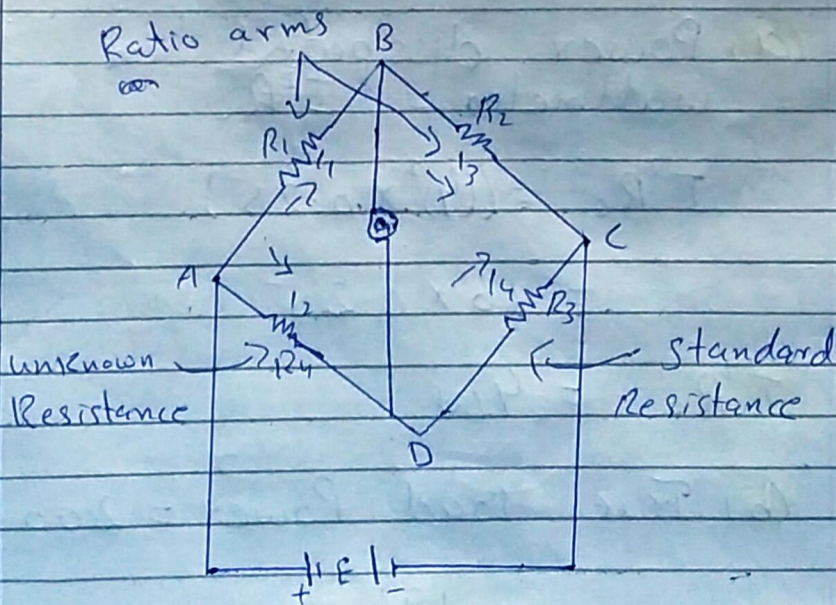 Ratio arms
B
R1
R2
I1
I3
A
C
I2
I4
R3
R4
unknown
Resistance
Standard
Resistance
D
+ E -